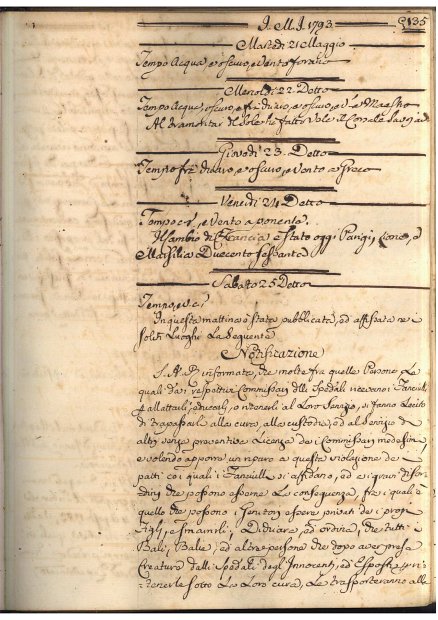 I. M. I. 1793
135
Martedì 21 Maggio
Tempo Acqua, e oscuro, e Vento foraneo
Mercoldì 22 Detto
Tempo Acqua, oscuro, e fra chiaro, e oscuro, e V. e Maestro
Al tramontar del Sole si fatto Vele il
Giovedì 23. Detto
Tempo fra chiaro, e oscuro, e Vento a Greco
Venerdì 24 Detto
Tempo e Vento a ponente.
Il Cambio di Francia è stato oggi Parigi, Lione, e
Marsilia Duecento sessanta
Sabato 25 Detto
Tempo,
In questa mattina è stata pubblicata, ed affissata ne
soliti Luoghi La seguente
Notificazione
S. A. R. informata, che molte fra quelle Persone, La
quali dai respettivi Commissari dlli Spedali ricevono i Fanciulli
p allattarli, educarli, o tenerli al Loro servizio, si fanno Lecito
di trapassarli alla cura, alla custodia, ed al servizio di
altri senza preventiva Licenza dei Commissari medesimi,
e volendo apporre un riparo a questa violazione dei
patti coi quali i Fanciulli si affidano, ed ai gravi disor-
dini che possono esserne La conseguenza, fra i quali è
quello che possono i Genitori essere privati dei propri
Figli, e smarirli, Dichiara, ed ordina, che tutti i
Bali, Balie, ed altre persone che dopo aver presa
Creatura dalli Spedali degl'Innocenti, ed Esposti p ri-
tenerle sotto La Loro cura, Le trasporteranno alla